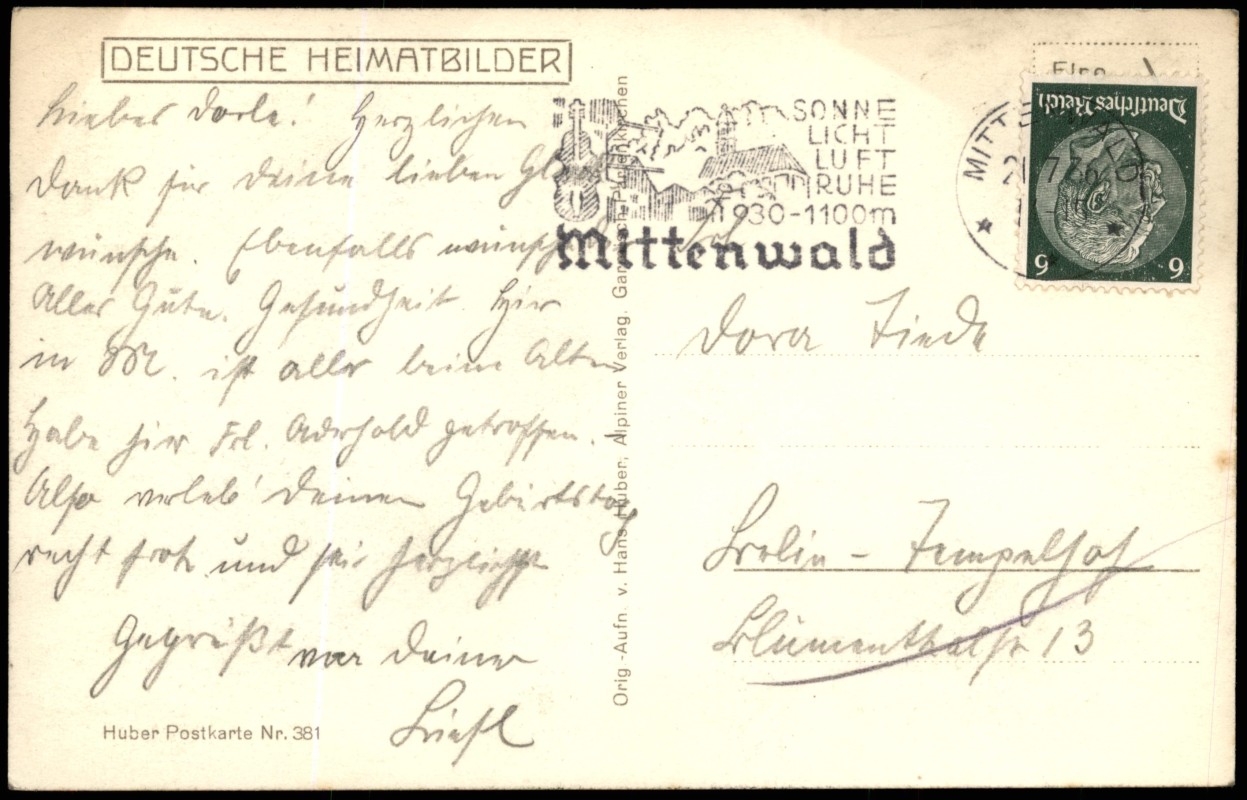 DEUTSCHE HEIMATBILDER
Liebes Dorle! Herzlichen
Dank für Deine lieben Glück
wünsche. Ebenfalls wünsche ich
Alles Gute. Gesundheit. Hier
in M. ist alles beim Alten
Habe hier Frl. Aderhold getroffen.
Also verleb' Deinen Geburtstag
recht froh und sei herzlichst
Gegrüßt von Deiner
Liesl
Huber Postkarte Nr. 381
Orig.-Aufn. v. Hans Huber, Alpiner Verlag. Garmisch-Partenkirchen
SONNE
LICHT
LUFT
RUHE
930-1100m
Mittenwald
MITTENWALD
21.7.36
Deutsches Reich
6 6
Dora Tiede
Berlin - Tempelhof
Blumenthalstr 13